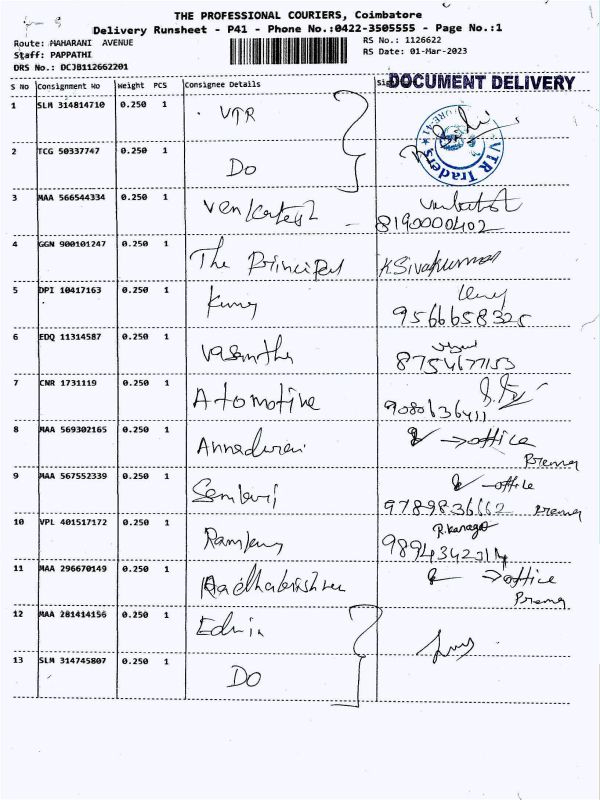 THE PROFESSIONAL COURIERS, Coimbatore
Delivery Runsheet - P41 - Phone No.:0422-3505555 - Page No.:1
Route: MAHARANI AVENUE RS No.: 1126622
Staff: PAPPATHI RS Date: 01-Mar-2023
DRS No.: DCJB112662201
S No Consignment No Weight PCS Consignee Details DOCUMENT DELIVERY
1 SLM 314814710 0.250 1 VTR
VTR Traders
2 TCG 50337747 0.250 1 Do
3 MAA 566544334 0.250 1 Venkatesh
8190000402
4 GGN 900101247 0.250 1 The Principal K Sivakumar
5 DPI 10417163 0.250 1
9566658325
6 EDQ 11314587 0.250 1 Vasantha
8754677153
7 CNR 1731119 0.250 1 Atomotive
9080636411
8 MAA 569302165 0.250 1 Annadurai → office
Prema
9 MAA 567552339 0.250 1 → office
9789836662 Prema
10 VPL 401517172 0.250 1 R.Kanaga
11 MAA 296670149 0.250 1 → office
Prema
12 MAA 281414156 0.250 1 Edwin
13 SLM 314745807 0.250 1 Do